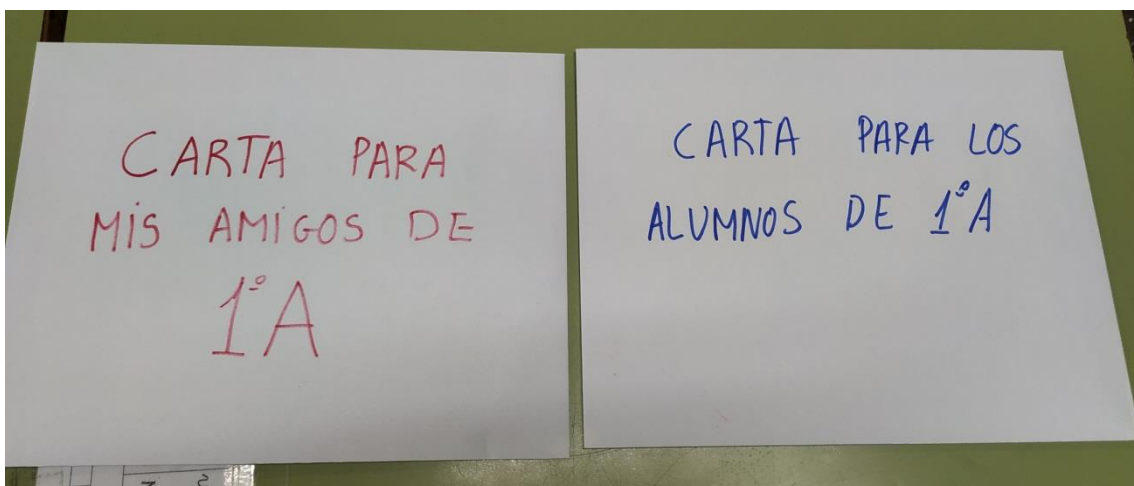 CARTA PARA
MIS AMIGOS DE
1º A
CARTA PARA LOS
ALUMNOS DE 1º A